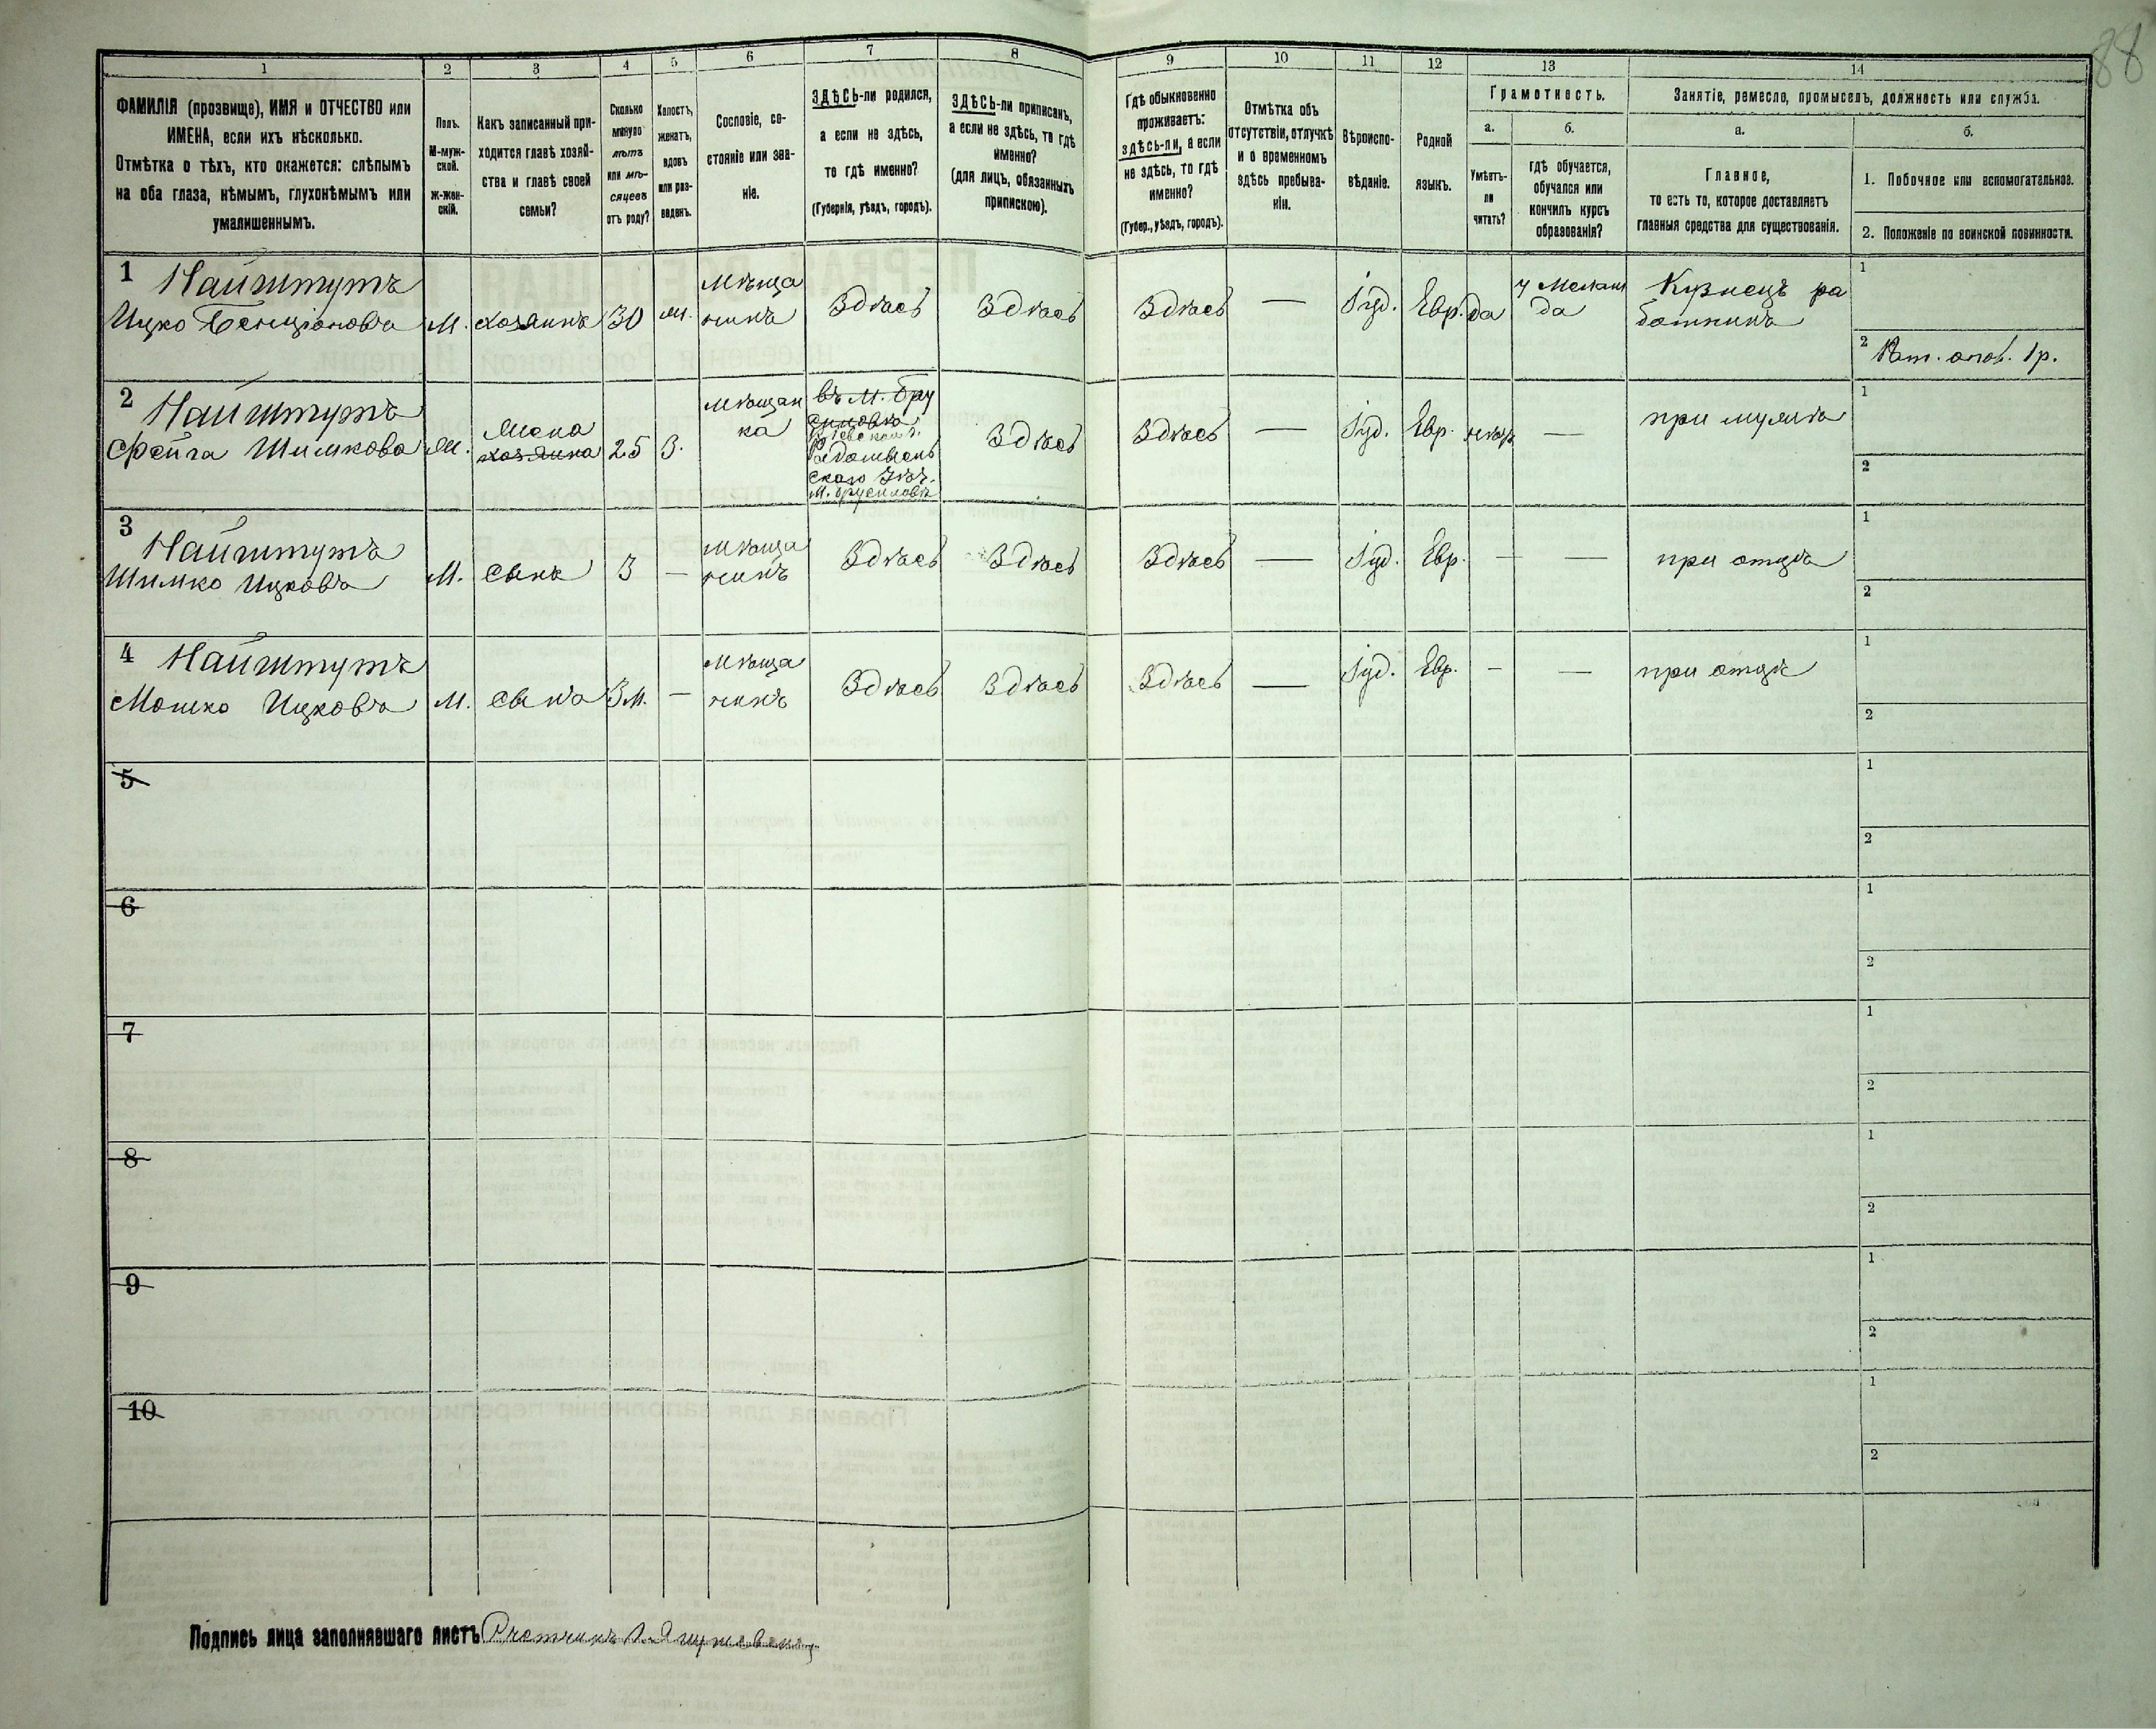 88
1 2 3 4 5 6 7 8 9 10 11 12 13 14
ФАМИЛІЯ (прозвище), ИМЯ и ОТЧЕСТВО или
ИМЕНА, если ихъ нѣсколько.
Отмѣтка о тѣхъ, кто окажется: слѣпымъ
на оба глаза, нѣмымъ, глухонѣмымъ или
умалишеннымъ.
Полъ.
М-муж-
ской.
Ж-жен-
скій.
Какъ записанный при-
ходится главѣ хозяй-
ства и главѣ своей
семьи?
Сколько
минуло
лѣтъ
или мѣ-
сяцевъ
отъ роду?
Холостъ,
женатъ,
вдовъ
или раз-
веденъ.
Сословіе, со-
стояніе или зва-
ніе.
ЗДѢСЬ-ли родился,
а если не здѣсь,
то гдѣ именно?
(Губернія, уѣздъ, городъ).
ЗДѢСЬ-ли приписанъ,
а если не здѣсь, то гдѣ
именно?
(для лицъ, обязанныхъ
припискою).
Гдѣ обыкновенно
проживаетъ:
здѣсь-ли, а если
не здѣсь, то гдѣ
именно?
(Губер., уѣздъ, городъ).
Отмѣтка объ
отсутствіи, отлучкѣ
и о временномъ
здѣсь пребыва-
ніи.
Вѣроиспо-
вѣданіе.
Родной
языкъ.
Грамотность.
а.
Умѣетъ-
ли
читать?
б.
гдѣ обучается,
обучался или
кончилъ курсъ
образованія?
Занятіе, ремесло, промыселъ, должность или служба.
а.
Главное,
то есть то, которое доставляетъ
главныя средства для существованія.
б.
1. Побочное или вспомогательное.
2. Положеніе по воинской повинности.
1 Найштутъ
Ицко Бенціоновъ
М.
хозяинъ
30
Мѣща
нинъ
Здѣсь
Здѣсь
Здѣсь
—
Іуд.
Евр.
да
да
Кузнецъ ра
ботникъ
1
2 Рат. опол. 1р.
2 Найштутъ
Фейга Шимкова
М.
Жена
хозяина
25
З.
Мѣщан
ка
въ М. Бру
силовѣ
Кіевской г.
Радомысль
скаго Уѣз.
М. Брусиловѣ
Здѣсь
Здѣсь
—
Іуд.
Евр.
—
при мужѣ
1
2
3 Найштутъ
Шимко Ицковъ
М.
сынъ
3
—
Мѣща
нинъ
Здѣсь
Здѣсь
Здѣсь
—
Іуд.
Евр.
—
—
при отцѣ
1
2
4 Найштутъ
Мошко Ицковъ
М.
сынъ
3м.
—
Мѣща
нинъ
Здѣсь
Здѣсь
Здѣсь
—
Іуд.
Евр.
—
—
при отцѣ
1
2
5
1
2
6
1
2
7
1
2
8
1
2
9
1
2
10
1
2
Подпись лица заполнявшаго листъ